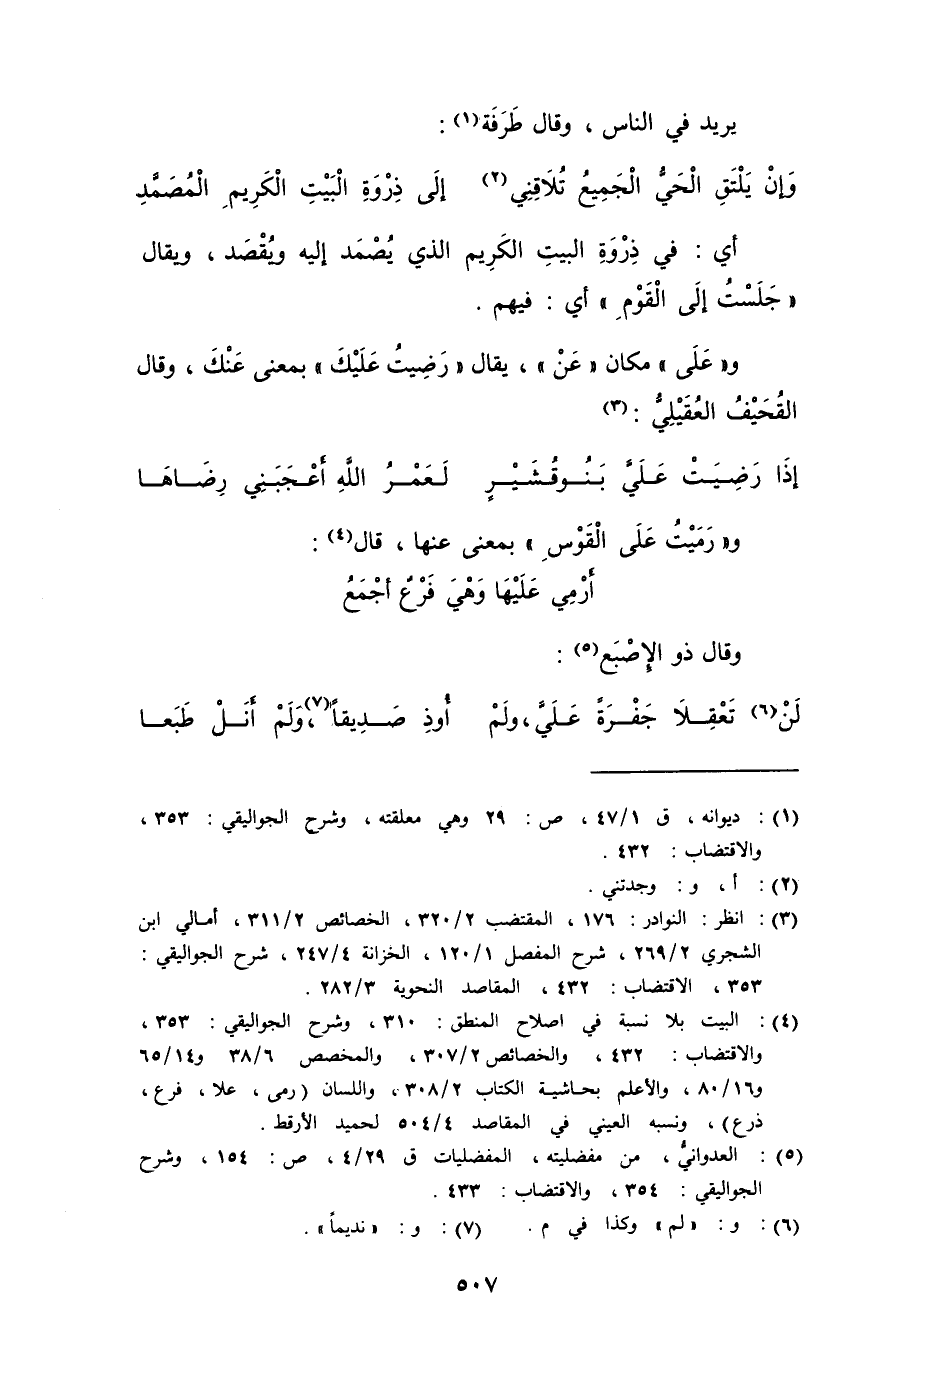 يريد في الناس ، وقال طَرَفَة(١) :
وَإنْ يَلْتَقِ الْحَيُّ الْجَمِيعُ تُلَاقِنِي(٢) إلَى ذِرْوَةِ الْبَيْتِ الْكَرِيمِ الْمُصَمَّدِ
أي : في ذِرْوَةِ البيتِ الكَرِيم الذي يُصْمَد إليه ويُقْصَد ، ويقال
« جَلَسْتُ إلَى الْقَوْمِ » أي : فيهم .
و« عَلَى » مكان « عَنْ » ، يقال « رَضِيتُ عَلَيْكَ » بمعنى عَنْكَ ، وقال
القُحَيْفُ العُقَيْلِيُّ :(٣)
إذَا رَضِيَتْ عَلَيَّ بَنُوقُشَيْرٍ لَعَمْرُ اللَّهِ أَعْجَبَنِي رِضَاهَا
و« رَمَيْتُ عَلَى الْقَوْسِ » بمعنى عنها ، قال(٤) :
أَرْمِي عَلَيْهَا وَهْيَ فَرْعٌ أجْمَعُ
وقال ذو الإِصْبَع(٥) :
لَنْ(٦) تَعْقِلَا جَفْرَةً عَلَيَّ، ولَمْ أُوذِ صَدِيقاً(٧)، وَلَمْ أَنَلْ طَبَعا
(١) : ديوانه ، ق ٤٧/١ ، ص : ٢٩ وهي معلقته ، وشرح الجواليقي : ٣٥٣ ،
والاقتضاب : ٤٣٢ .
(٢) : أ ، و : وجدتني .
(٣) : انظر : النوادر : ١٧٦ ، المقتضب ٣٢٠/٢ ، الخصائص ٣١١/٢ ، أمالي ابن
الشجري ٢٦٩/٢ ، شرح المفصل ١٢٠/١ ، الخزانة ٢٤٧/٤ ، شرح الجواليقي :
٣٥٣ ، الاقتضاب : ٤٣٢ ، المقاصد النحوية ٢٨٢/٣ .
(٤) : البيت بلا نسبة في اصلاح المنطق : ٣١٠ ، وشرح الجواليقي : ٣٥٣ ،
والاقتضاب : ٤٣٢ ، والخصائص ٣٠٧/٢ ، والمخصص ٣٨/٦ و٦٥/١٤
و٨٠/١٦ ، والأعلم بحاشية الكتاب ٣٠٨/٢ ، واللسان (رمى ، علا ، فرع ،
ذرع) ، ونسبه العيني في المقاصد ٥٠٤/٤ لحميد الأرقط .
(٥) : العدوانيُّ ، من مفضليته ، المفضليات ق ٤/٢٩ ، ص : ١٥٤ ، وشرح
الجواليقي : ٣٥٤ ، والاقتضاب : ٤٣٣ .
(٦) : و : «لم» وكذا في م . (٧) : و : «نديماً» .
٥٠٧